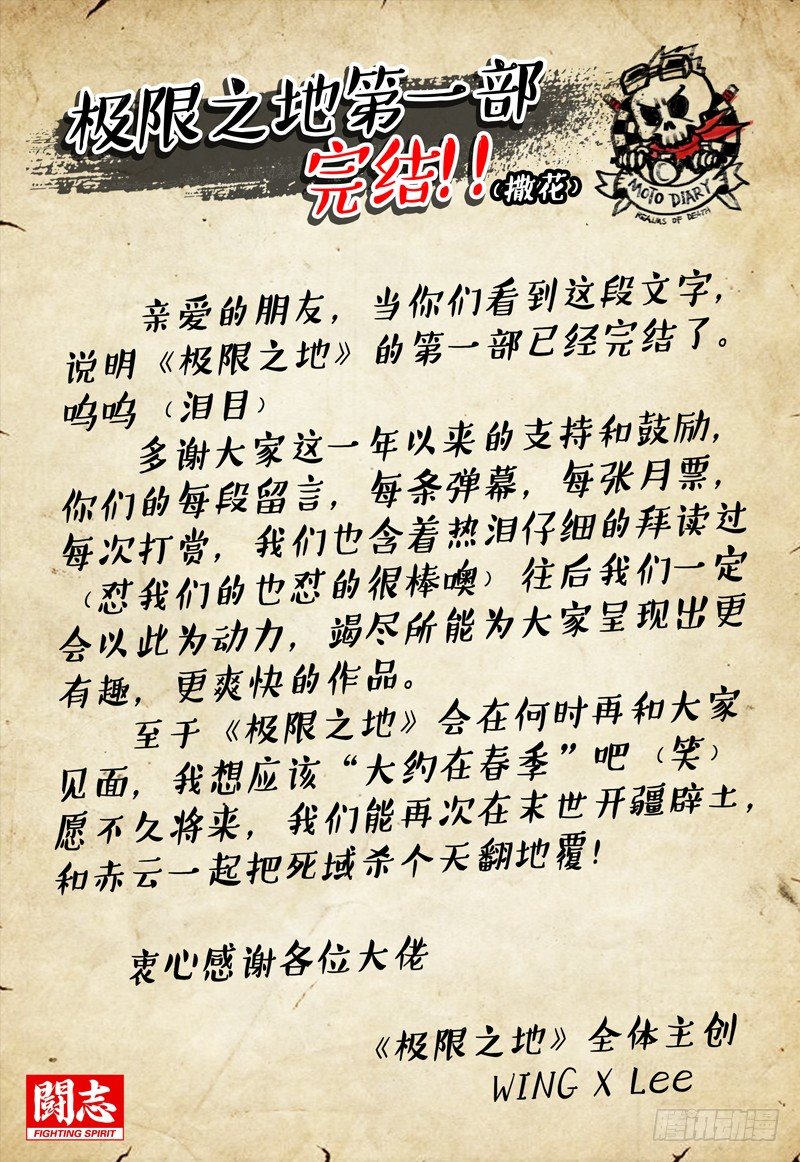 极限之地第一部
完结!!(撒花)
MOTO DIARY
REALMS OF DEATH
亲爱的朋友，当你们看到这段文字，
说明《极限之地》的第一部已经完结了。
呜呜（泪目）
多谢大家这一年以来的支持和鼓励，
你们的每段留言，每条弹幕，每张月票，
每次打赏，我们也含着热泪仔细的拜读过
（怼我们的也怼的很棒噢）往后我们一定
会以此为动力，竭尽所能为大家呈现出更
有趣，更爽快的作品。
至于《极限之地》会在何时再和大家
见面，我想应该“大约在春季”吧（笑）
愿不久将来，我们能再次在末世开疆辟土，
和赤云一起把死域杀个天翻地覆！
衷心感谢各位大佬
《极限之地》全体主创
WING X Lee
闘志
FIGHTING SPIRIT
腾讯动漫